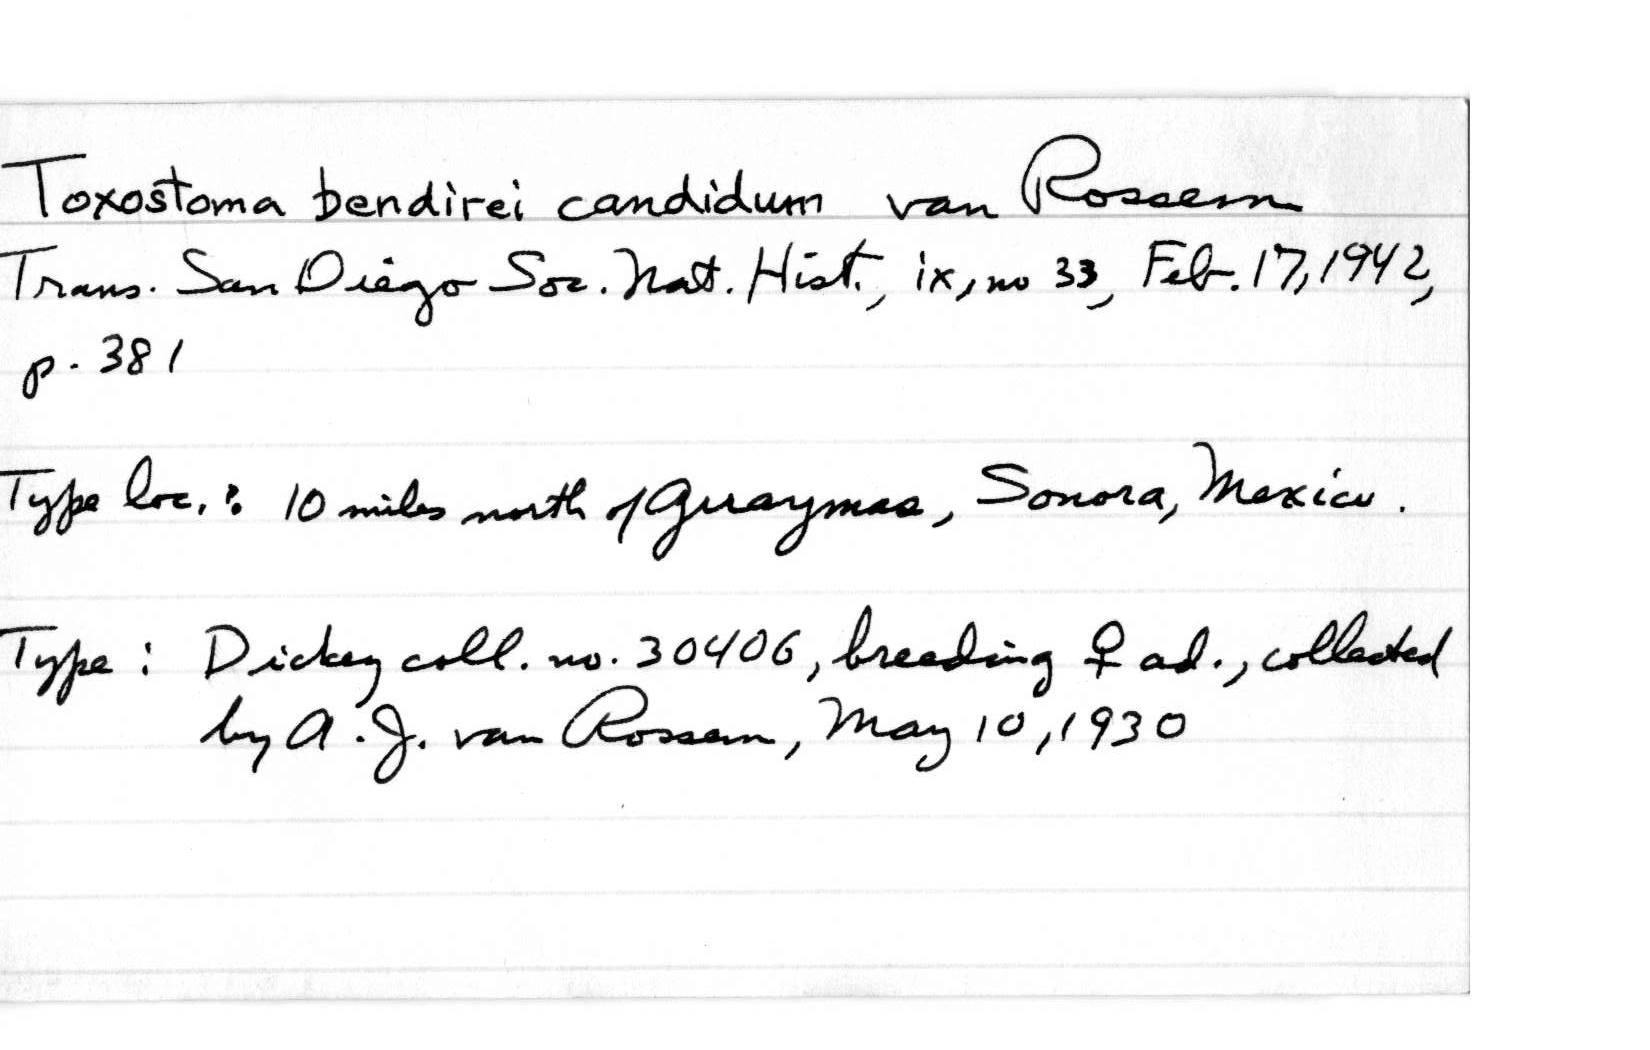 Toxostoma bendirei candidum van Rossem
Trans. San Diego Soc. Nat. Hist., ix, no 33, Feb. 17, 1942,
p. 381
Type loc.: 10 miles north of Guaymas, Sonora, Mexico.
Type: Dickey coll. no. 30406, breeding ♀ ad., collected
by A. J. van Rossem, May 10, 1930